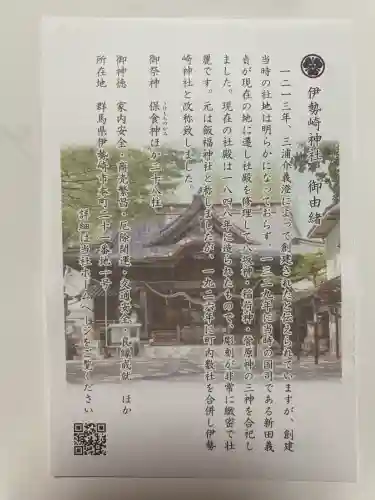 伊勢崎神社 御由緒
一二一三年、三浦介義澄によって創建されたと伝えられていますが、創建
当時の社地は明らかになっておらず、一三三九年に当時の国司である新田義
貞が現在の地に遷し社殿を修理して八坂神・稲荷神・菅原神の三神を合祀し
ました。現在の社殿は一八四八年に造られたもので、彫刻が非常に緻密で壮
麗です。元は飯福神社と称しましたが、一九二六年に町内数社を合併し伊勢
崎神社と改称致しました。
御祭神 保食神ほか二十八柱
うけもちのかみ
御神徳 家内安全・商売繁昌・厄除開運・交通安全・良縁成就 ほか
所在地 群馬県伊勢崎市本町二十一番地一号
詳細は当社ホームページをご覧ください